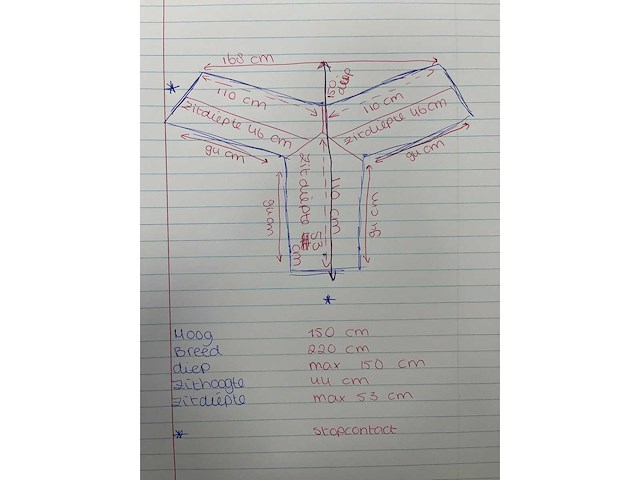 168 cm
150 diep
110 cm
110 cm
zitdiepte 46 cm
zitdiepte 46 cm
94 cm
94 cm
94 cm
zitdiepte 53 cm
110 cm
94 cm
*
*
Hoog 150 cm
Breed 220 cm
diep max 150 cm
zithoogte 44 cm
zitdiepte max 53 cm
* stopcontact